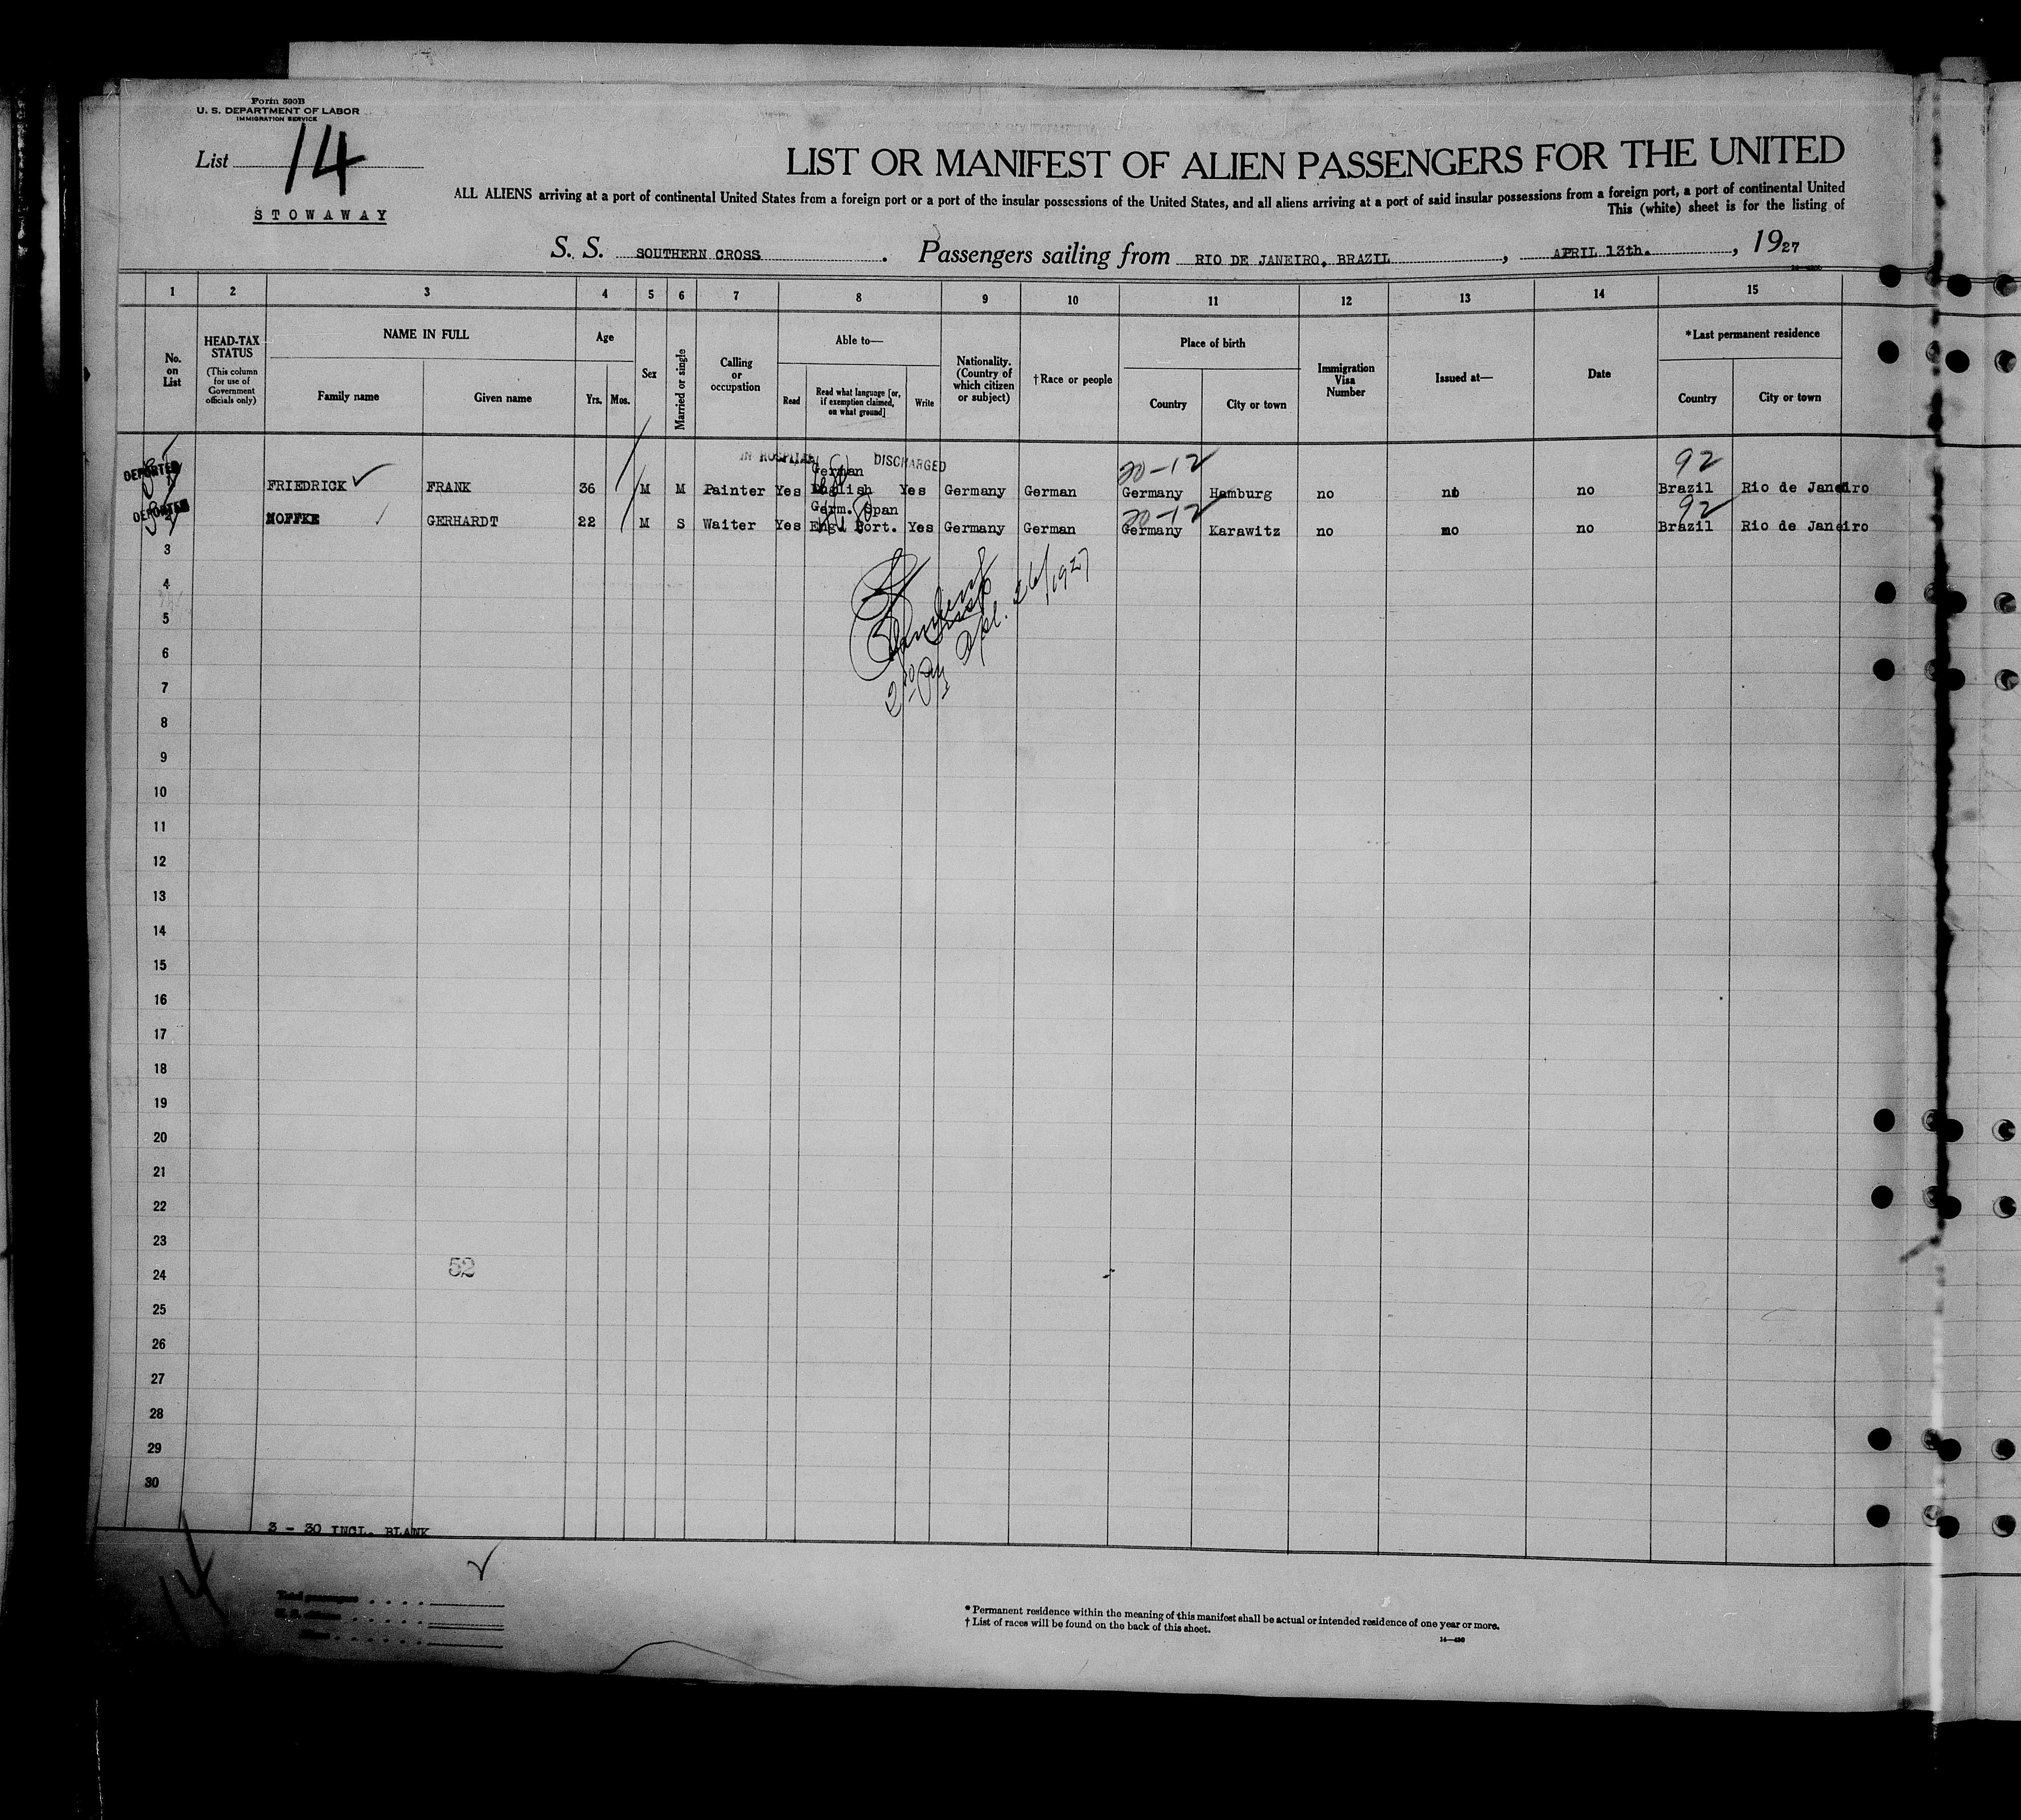 Form 500B
U. S. DEPARTMENT OF LABOR
IMMIGRATION SERVICE
List 14
STOWAWAY
LIST OR MANIFEST OF ALIEN PASSENGERS FOR THE UNITED
ALL ALIENS arriving at a port of continental United States from a foreign port or a port of the insular possessions of the United States, and all aliens arriving at a port of said insular possessions from a foreign port, a port of continental United
This (white) sheet is for the listing of
S. S. SOUTHERN CROSS. Passengers sailing from RIO DE JANEIRO, BRAZIL, APRIL 13th., 1927
1 2 3 4 5 6 7 8 9 10 11 12 13 14 15
No. on List
HEAD-TAX STATUS (This column for use of Government officials only)
NAME IN FULL
Family name Given name
Age
Yrs. Mos.
Sex
Married or single
Calling or occupation
Able to—
Read Read what language [or, if exemption claimed, on what ground] Write
Nationality. (Country of which citizen or subject)
†Race or people
Place of birth
Country City or town
Immigration Visa Number
Issued at—
Date
*Last permanent residence
Country City or town
IN HOSPITAL DISCHARGED 20-12 92
DEPORTED FRIEDRICK FRANK 36 M M Painter Yes German English Yes Germany German Germany Hamburg no no no Brazil Rio de Janeiro
20-12 92
DEPORTED GERHARDT 22 M S Waiter Yes Germ. Span Engl Port. Yes Germany German Germany Karawitz no no no Brazil Rio de Janeiro
3
4
5
6
7
8
9
10
11
12
13
14
15
16
17
18
19
20
21
22
23
24
25
26
27
28
29
30
Apl. 26/1927
52
3 - 30 INCL. BLANK
14
Total passengers
* Permanent residence within the meaning of this manifest shall be actual or intended residence of one year or more.
† List of races will be found on the back of this sheet.